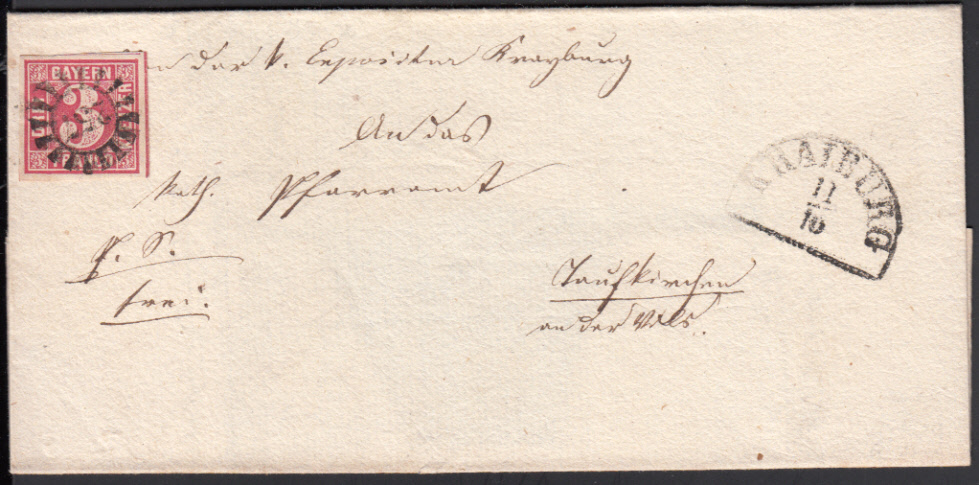 BAYERN
3
KREUZER
Von der k. Expositur Krayburg
An das
Kath. Pfarramt
P. S.
frei.
Taufkirchen
an der Vils.
KRAIBURG
11
10